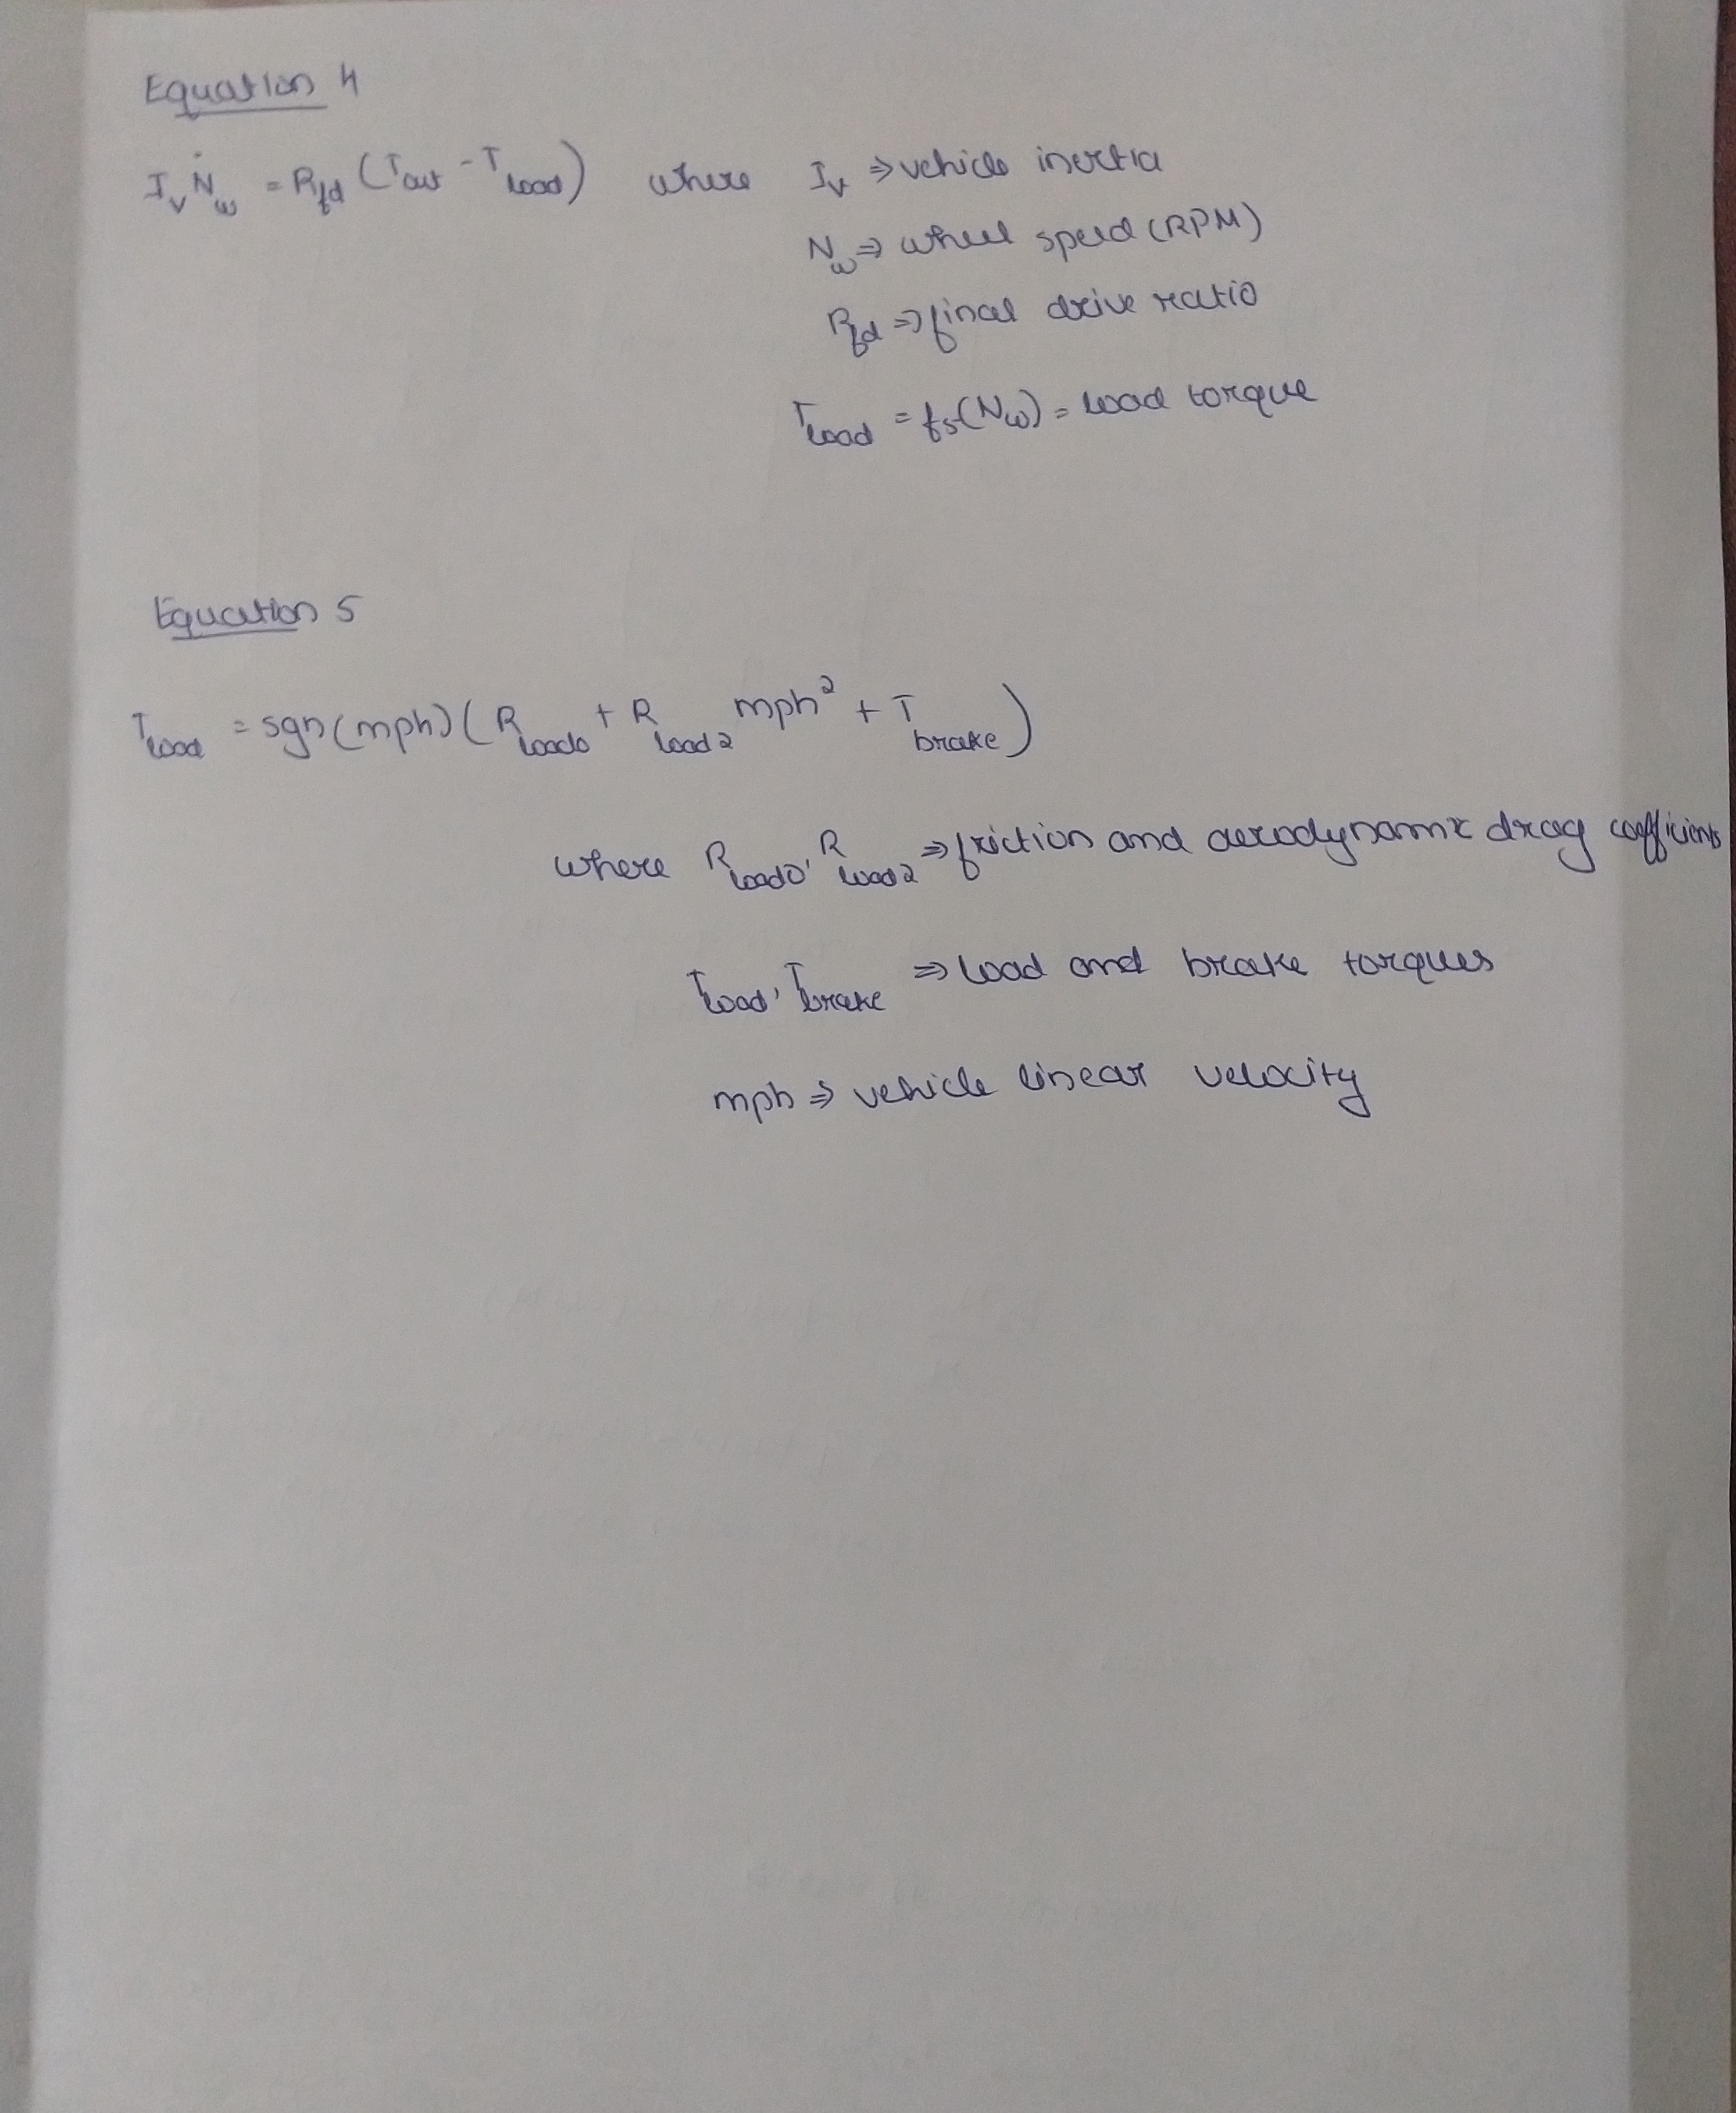 Equation 4
I_v Ṅ_w = R_fd (T_out - T_load) where I_v ⇒ vehicle inertia
N_w ⇒ wheel speed (RPM)
R_fd ⇒ final drive ratio
T_load = f_5(N_w) = load torque
Equation 5
T_load = sgn(mph)(R_load0 + R_load2 mph² + T_brake)
where R_load0, R_load2 ⇒ friction and aerodynamic drag coefficients
T_load, T_brake ⇒ load and brake torques
mph ⇒ vehicle linear velocity